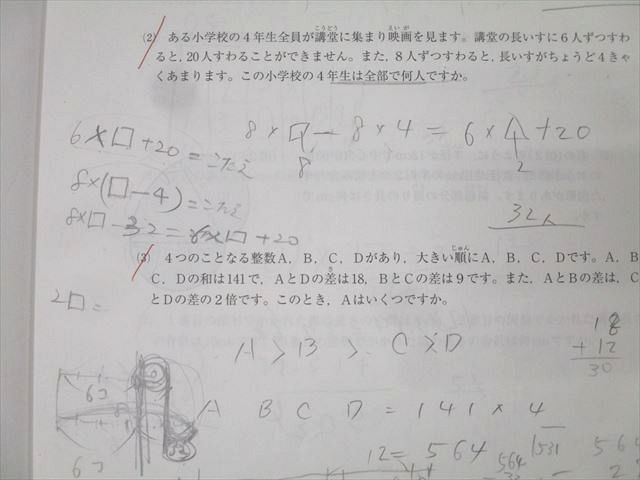 (2) ある小学校の4年生全員が講堂に集まり映画を見ます。講堂の長いすに6人ずつすわ
ると,20人すわることができません。また,8人ずつすわると,長いすがちょうど4きゃ
くあまります。この小学校の4年生は全部で何人ですか。
8×□-8×4=6×□+20
6×□+20=こたえ
8
2
8×(□-4)=こたえ
32人
8×□-32=6×□+20
(3) 4つのことなる整数A,B,C,Dがあり,大きい順にA,B,C,Dです。A,B
C,Dの和は141で,AとDの差は18,BとCの差は9です。また,AとBの差は,C
とDの差の2倍です。このとき,Aはいくつですか。
2□=
18
+12
30
A>B>C>D
6コ
A B C D =141×4
12=564
564
1531
564
6コ